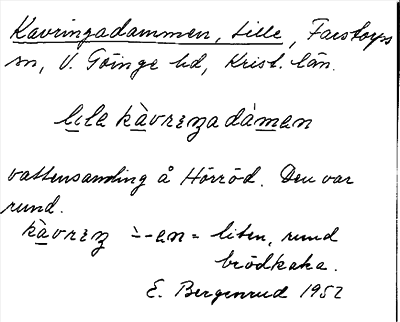 Kavringadammen, Lille, Farstorps
sn, V. Göinge hd, Krist. län.
lila kàvrɛŋadámen
vattensamling å Hörröd. Den var
rund.
kàvrɛŋ ˋ--en = liten, rund
brödkaka.
E. Bergenrud 1952